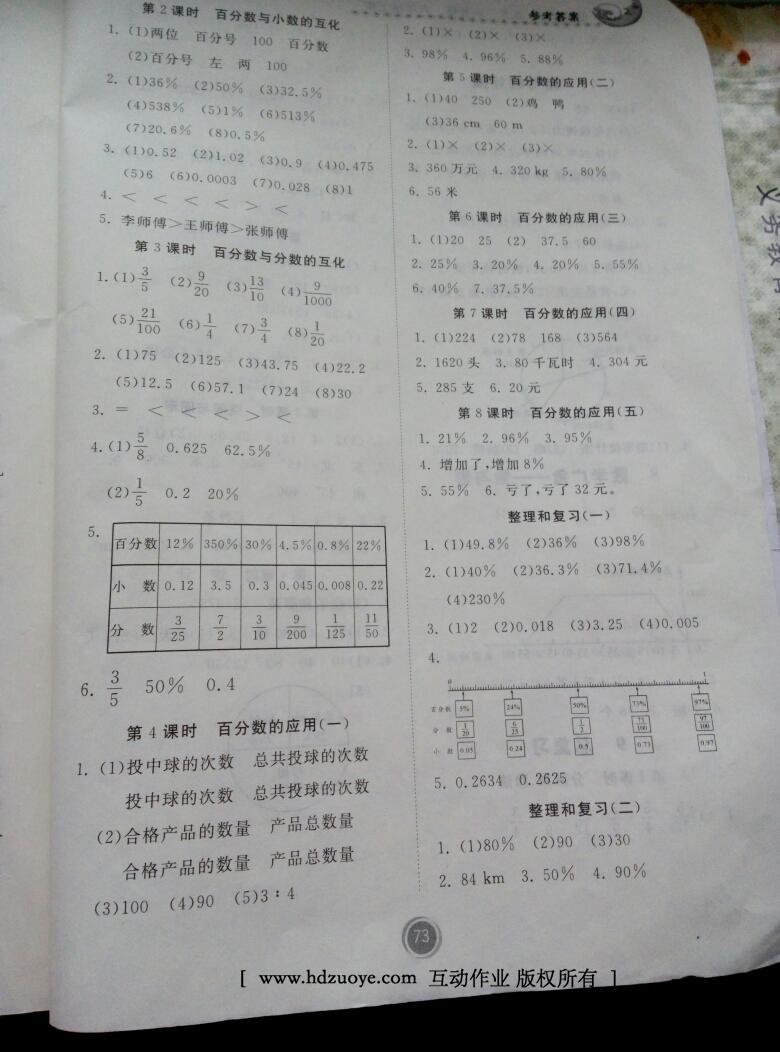 参考答案
第2课时 百分数与小数的互化
1. (1)两位 百分号 100 百分数
(2)百分号 左 两 100
2. (1)36% (2)50% (3)32.5%
(4)538% (5)1% (6)513%
(7)20.6% (8)0.5%
3. (1)0.52 (2)1.02 (3)0.9 (4)0.475
(5)6 (6)0.0003 (7)0.028 (8)1
4. < < < < > <
5. 李师傅>王师傅>张师傅
第3课时 百分数与分数的互化
1. (1)3/5 (2)9/20 (3)13/10 (4)9/1000
(5)21/100 (6)1/4 (7)3/4 (8)1/20
2. (1)75 (2)125 (3)43.75 (4)22.2
(5)12.5 (6)57.1 (7)24 (8)30
3. = < < < > <
4. (1)5/8 0.625 62.5%
(2)1/5 0.2 20%
5.
百分数 12% 350% 30% 4.5% 0.8% 22%
小数 0.12 3.5 0.3 0.045 0.008 0.22
分数 3/25 7/2 3/10 9/200 1/125 11/50
6. 3/5 50% 0.4
第4课时 百分数的应用(一)
1. (1)投中球的次数 总共投球的次数
投中球的次数 总共投球的次数
(2)合格产品的数量 产品总数量
合格产品的数量 产品总数量
(3)100 (4)90 (5)3∶4
2. (1)× (2)× (3)×
3. 98% 4. 96% 5. 88%
第5课时 百分数的应用(二)
1. (1)40 250 (2)鸡 鸭
(3)36 cm 60 m
2. (1)× (2)× (3)×
3. 360万元 4. 320 kg 5. 80%
6. 56米
第6课时 百分数的应用(三)
1. (1)20 25 (2) 37.5 60
2. 25% 3. 20% 4. 20% 5. 55%
6. 40% 7. 37.5%
第7课时 百分数的应用(四)
1. (1)224 (2)78 168 (3)564
2. 1620头 3. 80千瓦时 4. 304元
5. 285支 6. 20元
第8课时 百分数的应用(五)
1. 21% 2. 96% 3. 95%
4. 增加了,增加8%
5. 55% 6. 亏了,亏了32元。
整理和复习(一)
1. (1)49.8% (2)36% (3)98%
2. (1)40% (2)36.3% (3)71.4%
(4)230%
3. (1)2 (2)0.018 (3)3.25 (4)0.005
4.
0 1
百分数 5% 24% 50% 73% 97%
分数 1/20 6/25 1/2 73/100 97/100
小数 0.05 0.24 0.5 0.73 0.97
5. 0.2634 0.2625
整理和复习(二)
1. (1)80% (2)90 (3)30
2. 84 km 3. 50% 4. 90%
73
义务教育
[ www.hdzuoye.com 互动作业 版权所有 ]